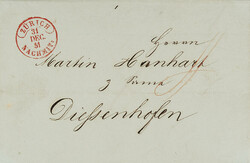 ZÜRICH
31
DEC.
51
NACHMITT.
Herrn
Martin Hanhart
z
Diessenhofen